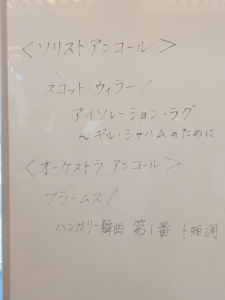 ＜ソリストアンコール＞
スコット・ウィラー/
アイソレーション・ラグ
～ギル・シャハムのために
＜オーケストラ アンコール＞
ブラームス/
ハンガリー舞曲 第1番 ト短調